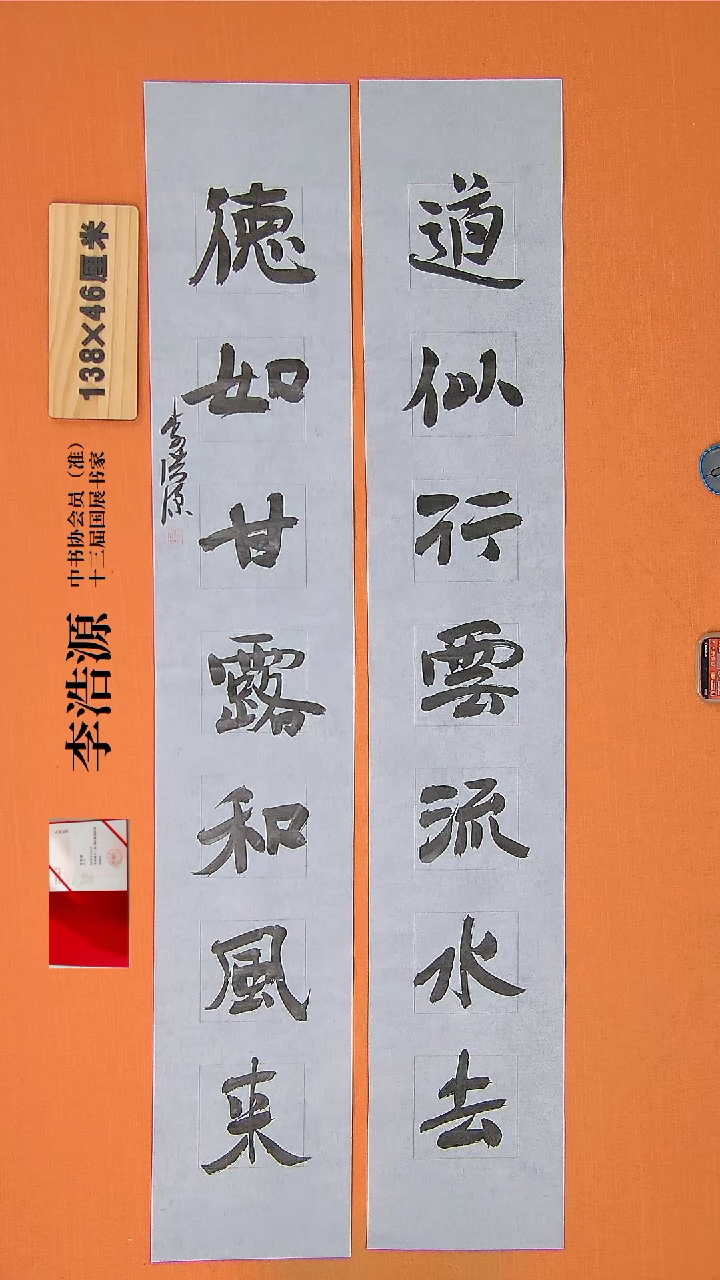 道似行雲流水去
德如甘露和風来
李浩源
138×46厘米
中书协会员（准）
十三届国展书家
李浩源